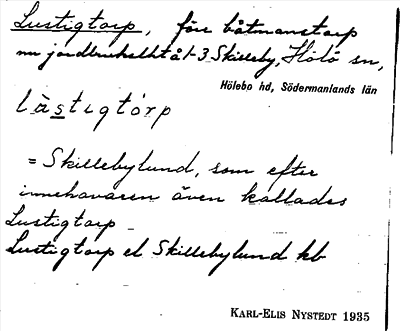 Lustigtorp, före båtmanstorp
nu jordbrukslht å 1-3 Skilleby, Hölö sn,
Hölebo hd, Södermanlands län
làstigtórp
= Skillebylund, som efter
innehavaren även kallades
Lustigtorp
Lustigtorp el Skillebylund kb
KARL-ELIS NYSTEDT 1935